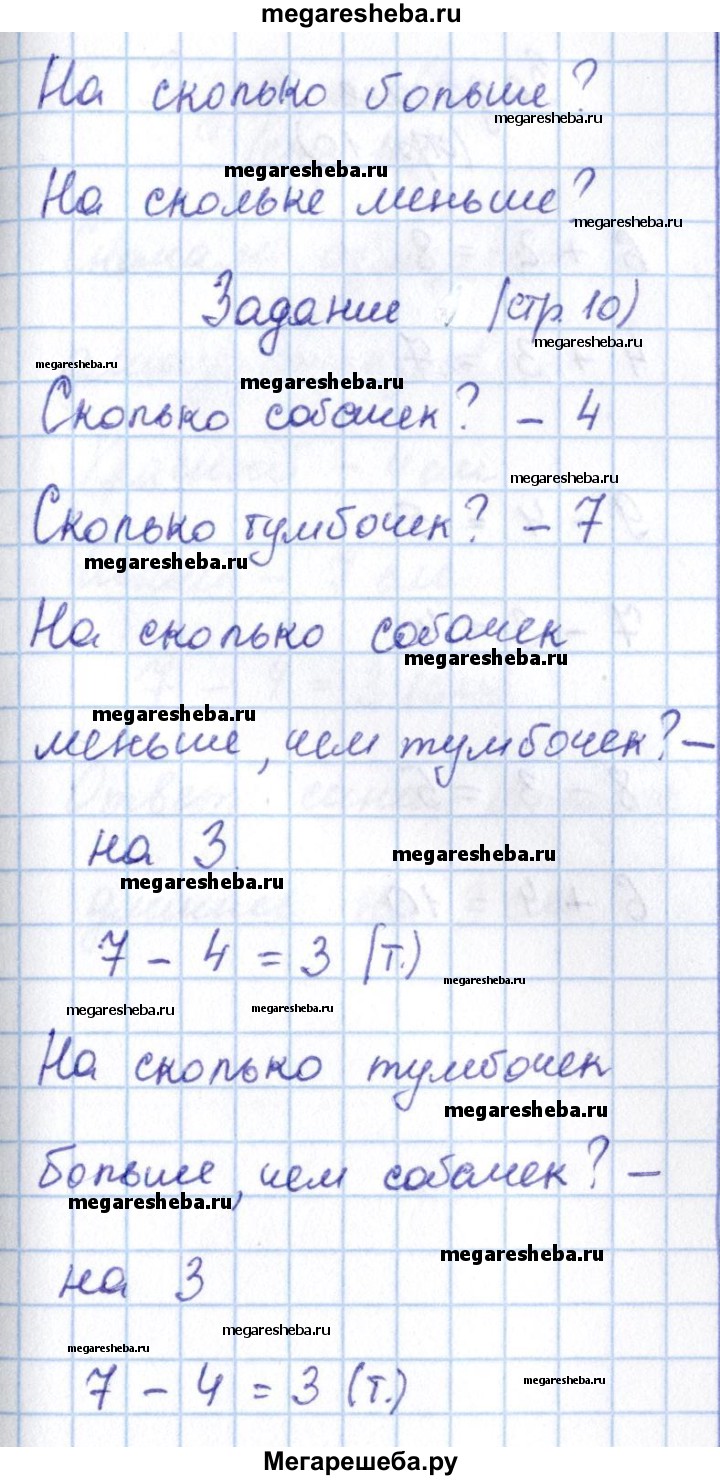 megaresheba.ru
На сколько больше?
megaresheba.ru
megaresheba.ru
На скольке меньше?
megaresheba.ru
Задание (стр. 10)
megaresheba.ru
megaresheba.ru
megaresheba.ru
Сколько собачек? – 4
megaresheba.ru
Сколько тумбочек? – 7
megaresheba.ru
На сколько собачек
megaresheba.ru
megaresheba.ru
меньше, чем тумбочек? –
на 3.
megaresheba.ru
megaresheba.ru
7 – 4 = 3 (т.)
megaresheba.ru
megaresheba.ru
megaresheba.ru
На сколько тумбочек
megaresheba.ru
больше, чем собачек? –
megaresheba.ru
megaresheba.ru
на 3
megaresheba.ru
megaresheba.ru
7 – 4 = 3 (т.)
megaresheba.ru
Мегарешеба.ру